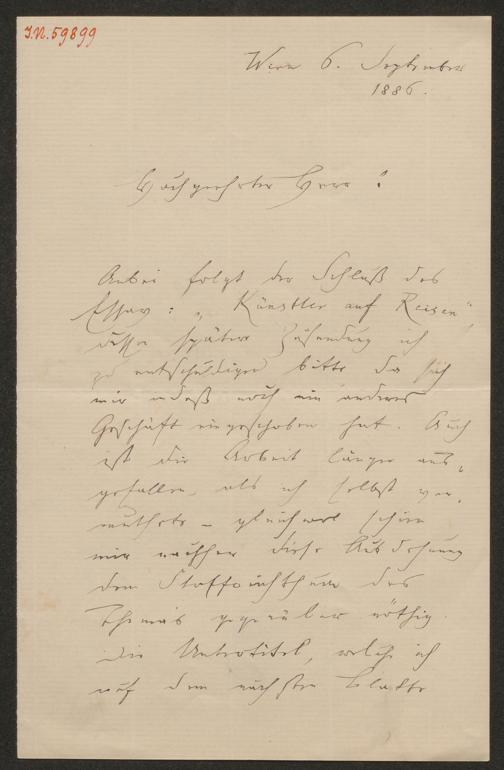 I.N. 59899
Wien 6. September
1886.
Hochgeehrter Herr!
Anbei folgt der Schluß des
Essay: „Künstler auf Reisen",
dessen spätere Zusendung ich
zu entschuldigen bitte da sich
mir indeß noch ein anderes
Geschäft eingeschoben hat. Auch
ist die Arbeit länger aus-
gefallen, als ich selbst ver-
muthete – gleichwol schien
mir nachher diese Ausdehnung
dem Stoffreichthum des
Thema's gegenüber nöthig.
Die Untertitel, welche ich
auf dem nächsten Blatte